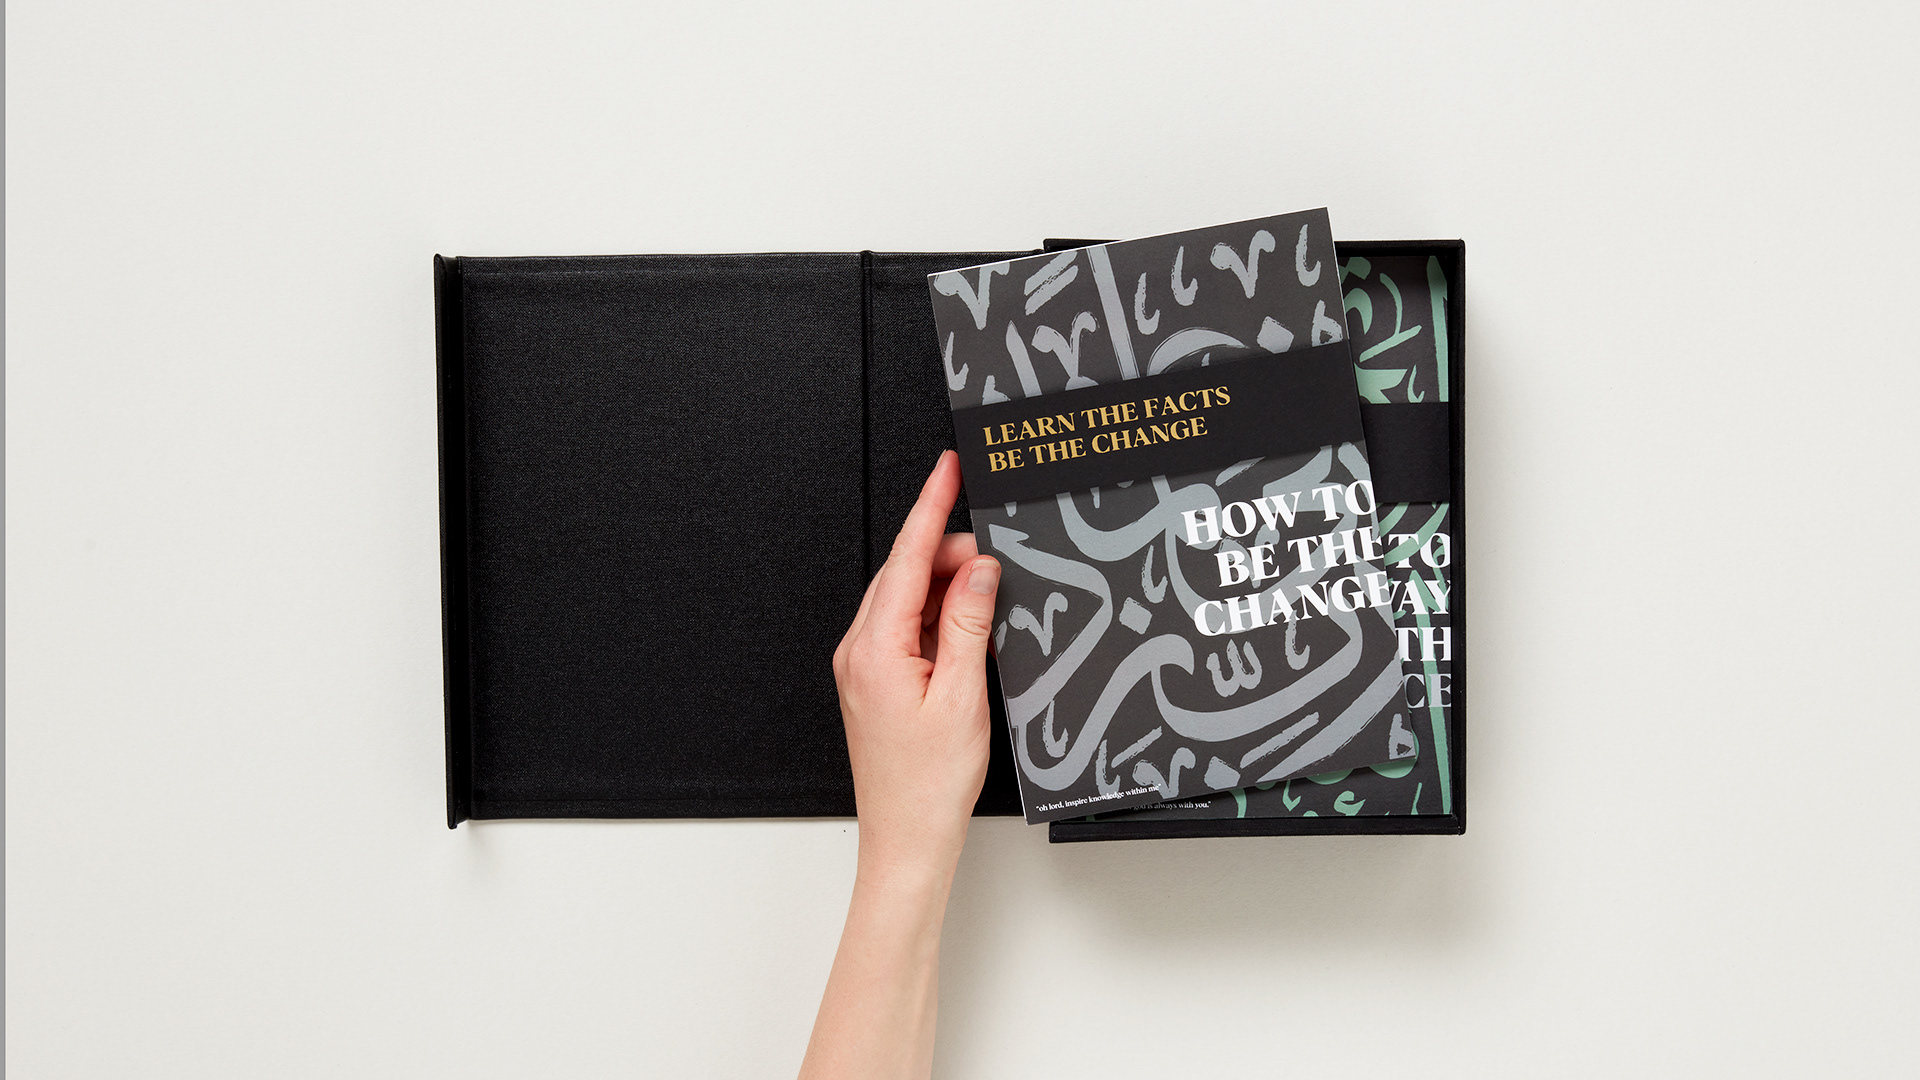 LEARN THE FACTS
BE THE CHANGE
HOW TO
BE THE
CHANGE
TO
AY
TH
CE
"oh lord, inspire knowledge within me"
god is always with you."